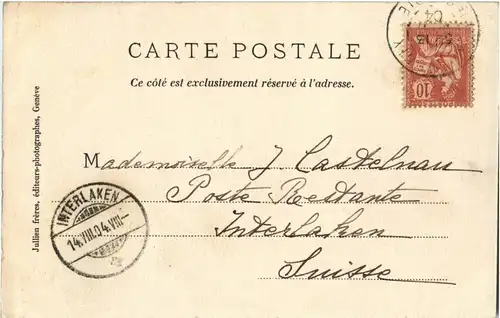 CARTE POSTALE
Ce côté est exclusivement réservé à l'adresse.
10
Mademoiselle J Castelnau
Poste Restante
Interlaken
Suisse
INTERLAKEN
14.VIII.04.VIII-
Jullien frères, éditeurs-photographes, Genève